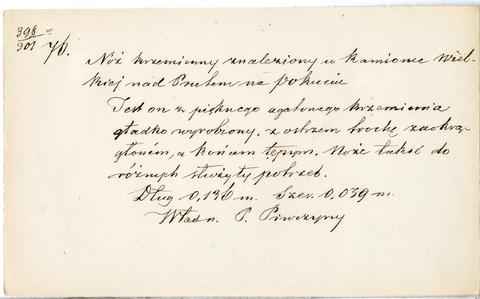 398
301
76.
Nóż krzemienny znaleziony w Kamionce Wiel-
kiej nad Prutem na Pokuciu
Jest on z pięknego agatowego krzemienia
gładko wyrobiony, z ostrzem trochę zaokrą-
glonem, a końcem tępym. Może także do
różnych służyły potrzeb.
Dług 0,136 m. Szer. 0,039 m.
Własn. P.